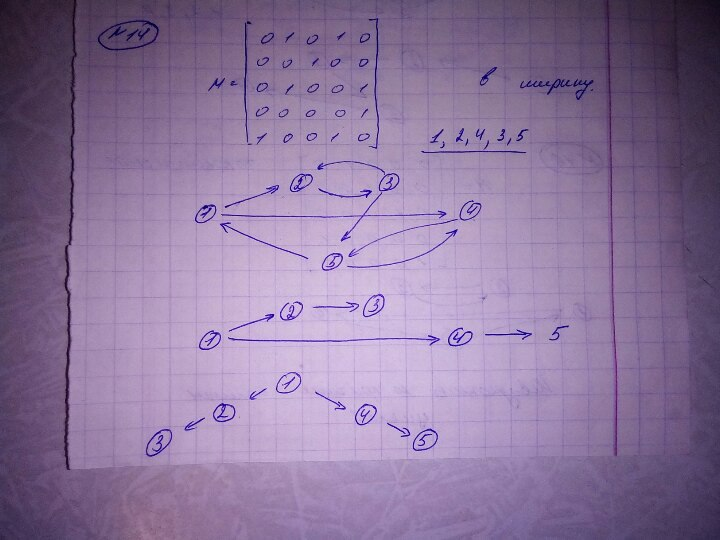 №14
M = [0 1 0 1 0
0 0 1 0 0
0 1 0 0 1
0 0 0 0 1
1 0 0 1 0]
в ширину.
1, 2, 4, 3, 5
2 3
1 4
5
2 3
1 4 5
1
2 4
3 5